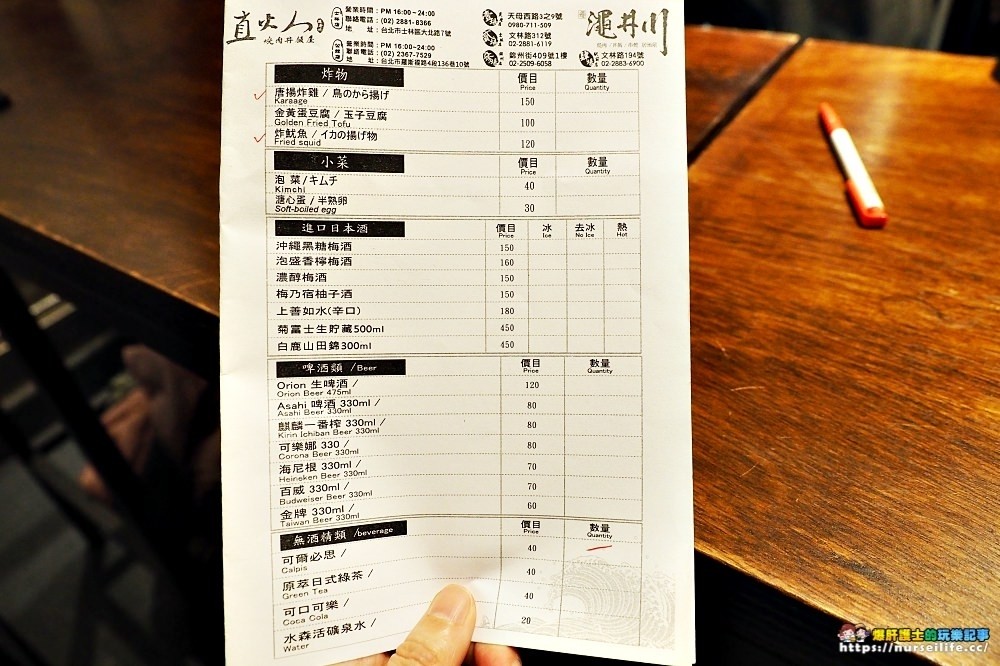 直火人
燒肉丼飯屋
士林店
營業時間：PM 16:00~24:00
聯絡電話：(02) 2881-8366
地　　址：台北市士林區大北路7號
公館店
營業時間：PM 16:00~24:00
聯絡電話：(02) 2367-7529
地　　址：台北市羅斯福路4段136巷10號
天母西路3之9號
0980-711-509
文林路312號
02-2881-6119
錦州街409號1樓
02-2509-6058
澠井川
文林路194號
02-2883-6900
炸物 價目 Price 數量 Quantity
唐揚炸雞 / 鳥のから揚げ
Karaage 150
金黃蛋豆腐 / 玉子豆腐
Golden Fried Tofu 100
炸魷魚 / イカの揚げ物
Fried squid 120
小菜 價目 Price 數量 Quantity
泡 菜/キムチ
Kimchi 40
溏心蛋 / 半熟卵
Soft-boiled egg 30
進口日本酒 價目 Price 冰 Ice 去冰 No Ice 熱 Hot
沖繩黑糖梅酒 150
泡盛香檸梅酒 160
濃醇梅酒 150
梅乃宿柚子酒 150
上善如水(辛口) 180
菊富士生貯藏500ml 450
白鹿山田錦300ml 450
啤酒類 /Beer 價目 Price 數量 Quantity
Orion 生啤酒 /
Orion Beer 475ml 120
Asahi 啤酒 330ml /
Asahi Beer 330ml 80
麒麟一番榨 330ml /
Kirin Ichiban Beer 330ml 80
可樂娜 330 /
Corona Beer 330ml 80
海尼根 330ml /
Heineken Beer 330ml 70
百威 330ml /
Budweiser Beer 330ml 70
金牌 330ml /
Taiwan Beer 330ml 60
無酒精類 /beverage 價目 Price 數量 Quantity
可爾必思 /
Calpis 40
原萃日式綠茶 /
Green Tea 40
可口可樂 /
Coca Cola 40
水森活礦泉水 /
Water 20
爆肝護士的玩樂記事
https://nurseilife.cc/